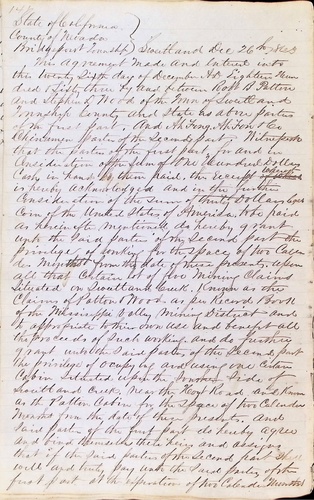 State of California
County of Nevada
Bridgeport Township Sweetland Dec 26th 1863
This Agreement Made and Entered into
this Twenty Sixth day of December AD Eighteen Hun
dred & Sixty three by and between Robt B Patton
and Stephen Wood of the Town of Sweetland
Township County and State as above parties
of the first part, And Ah Fong Ah Fon & Co
Chinamen parties of the Second part, Witnesseth
that the parties of the first part for and in
Consideration of the Sum of One Hundred Dollars
Cash in hand to them paid, the receipt whereof
is hereby acknowledged and in the further
Consideration of the sum of Dollars
Coin of the United States of America to be paid
as hereinafter mentioned do hereby grant
unto the Said parties of the Second part the
privilege of working for the space of two Calen
der Months from the date of these presents, upon
all that Certain lot of five Mining Claims
Situated on Sweetland Creek, Known as the
Claims of Patton & Wood as per Record Book
of the Mississippi Valley Mining District and
to appropriate to their own use and benefit all
the proceeds of Such working, and do further
grant unto the Said parties of the Second part
the privilege of occupying and using one Certain
Cabin Situated upon the Side of
Sweetland Creek Near the Road and Known
as the Patton Cabin for the Space of two Calendar
Months from the date of these presents. And
Said parties of the first part do hereby agree
and bind themselves their heirs and assigns
that if the Said parties of the Second part Shall
well and truly pay unto the Said parties of the
first part at the expiration of two Calendar Months